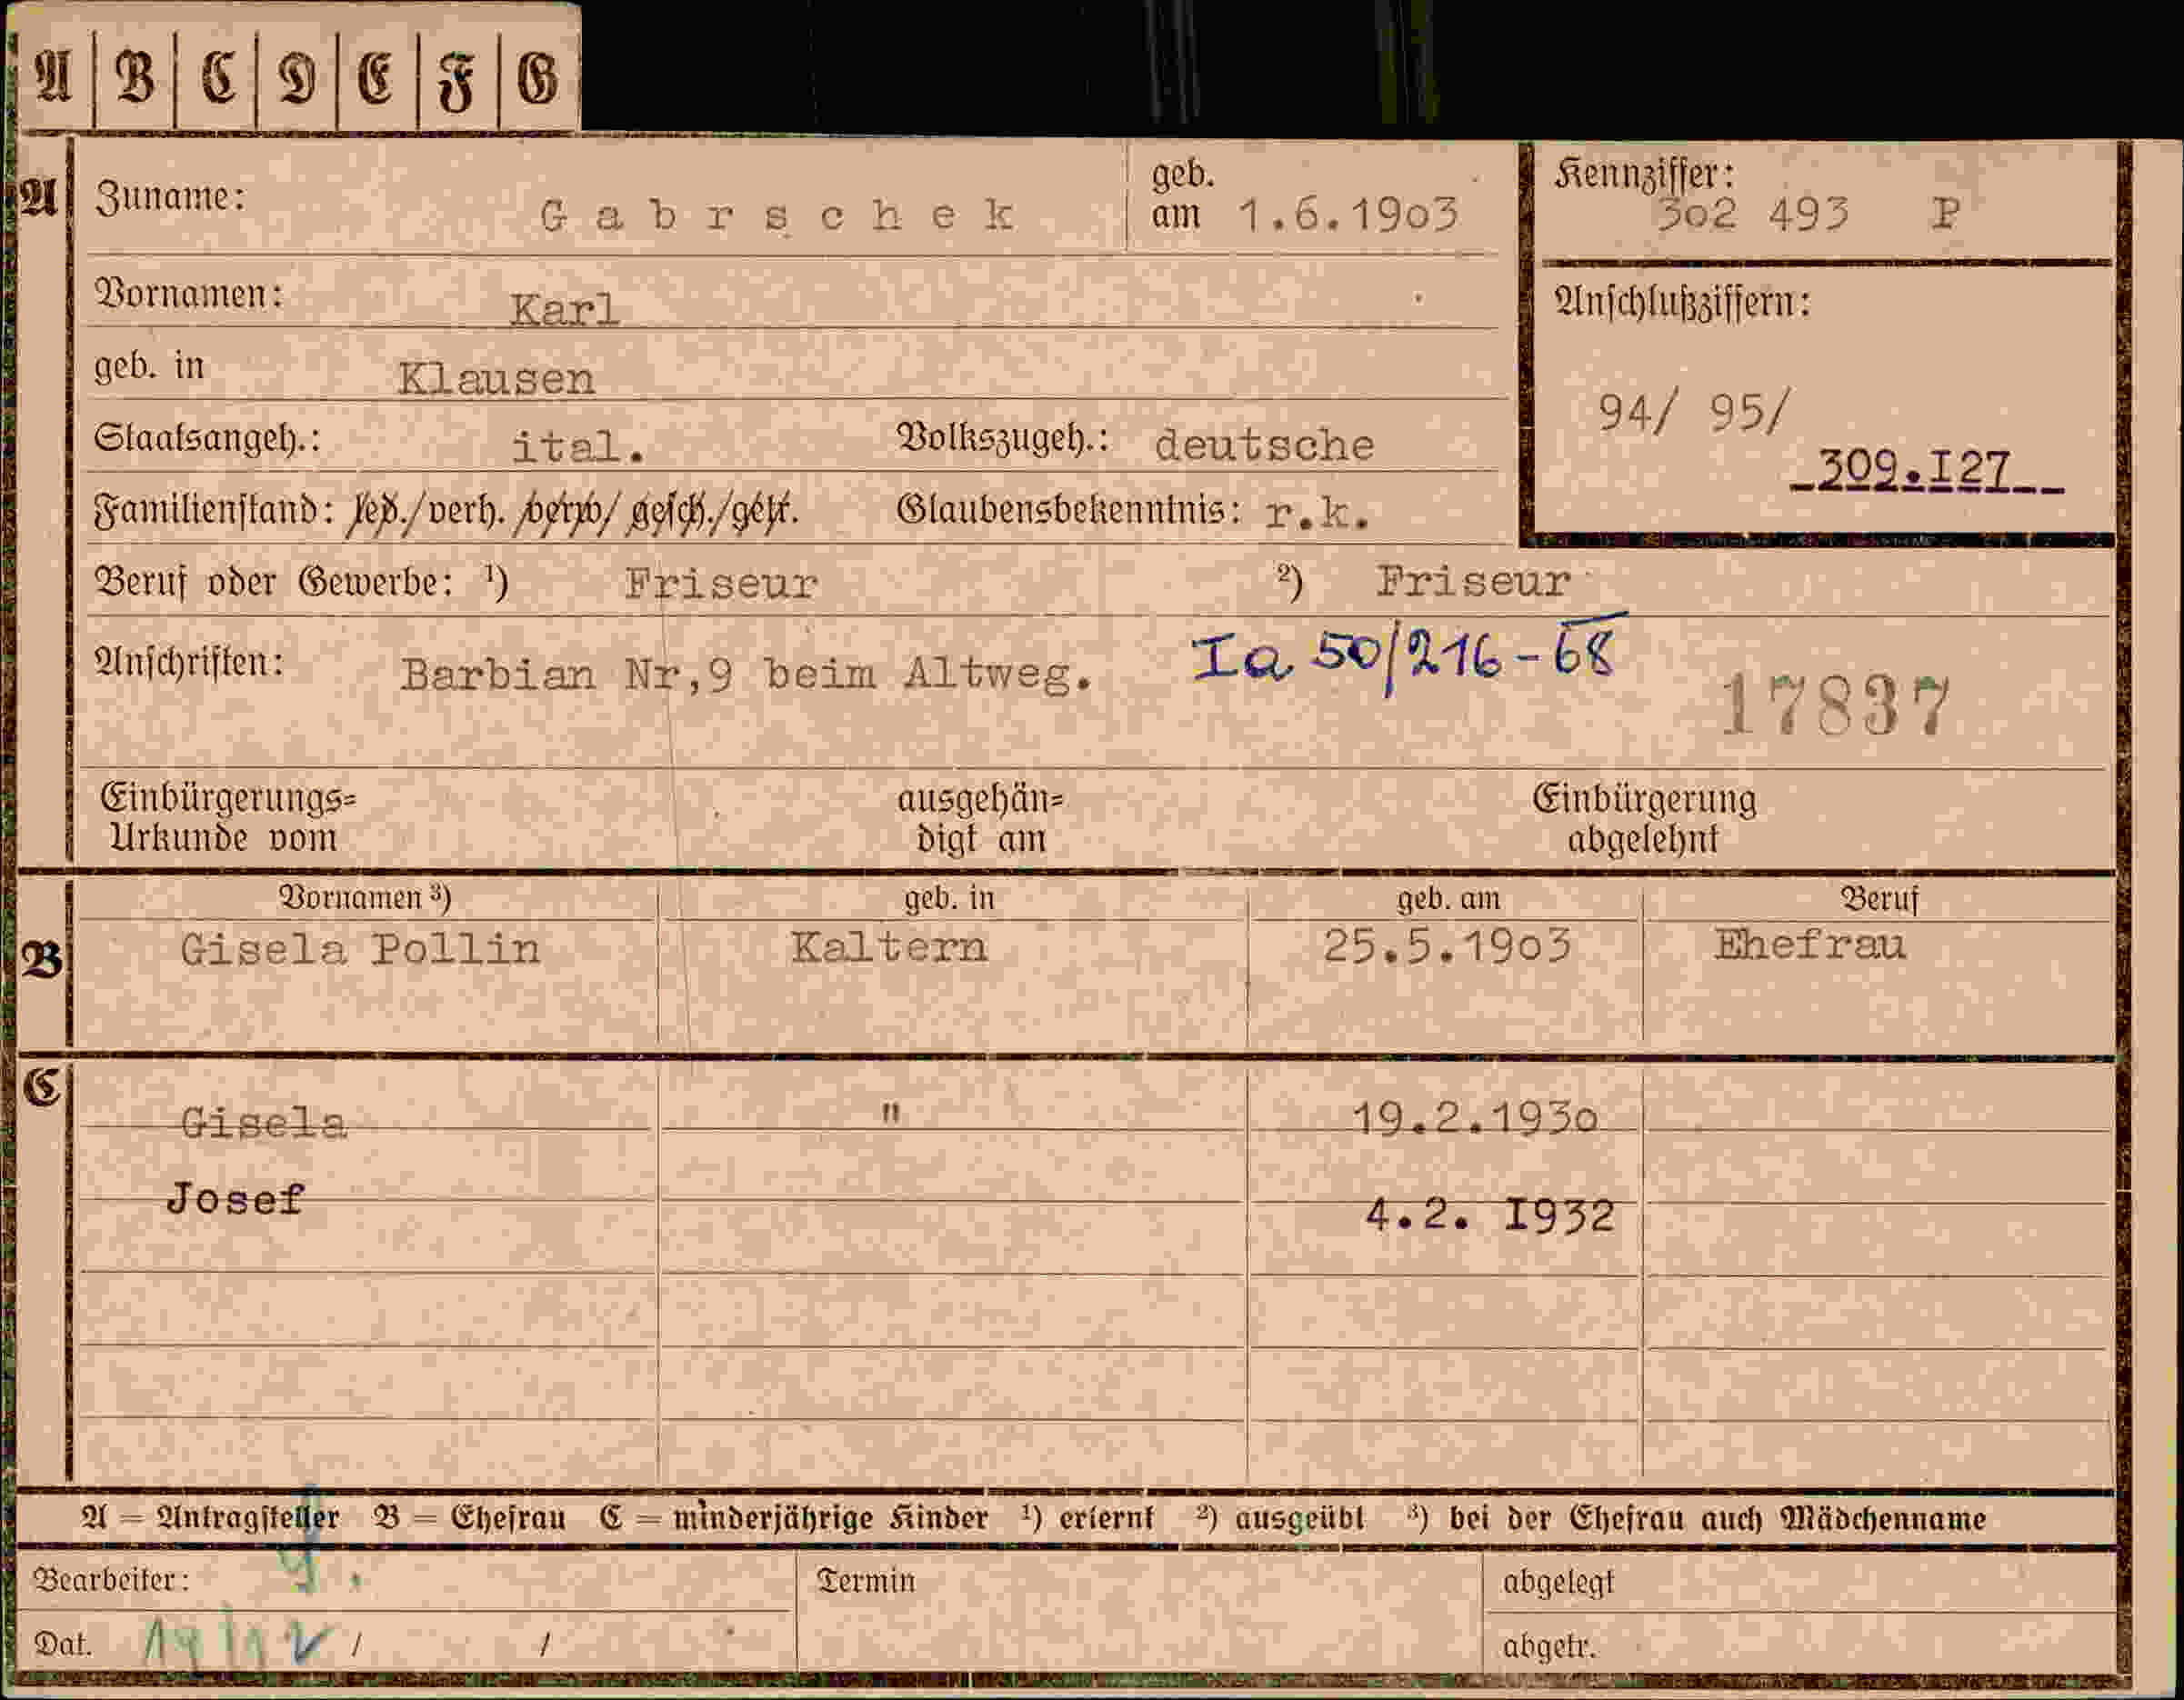 A B C D E F G
A Zuname: Gabrschek geb. am 1.6.1903 Kennziffer: 302 493 P
Vornamen: Karl Anschlußziffern:
geb. in Klausen 94/ 95/
Staatsangeh.: ital. Volkszugeh.: deutsche 309.I27
Familienstand: led./verh. verw/ gesch./getr. Glaubensbekenntnis: r.k.
Beruf oder Gewerbe: ¹) Friseur ²) Friseur
Anschriften: Barbian Nr,9 beim Altweg. Ia 50/216-68 17837
Einbürgerungs= ausgehän= Einbürgerung
Urkunde vom digt am abgelehnt
Vornamen ³) geb. in geb. am Beruf
B Gisela Pollin Kaltern 25.5.1903 Ehefrau
C Gisela " 19.2.1930
Josef 4.2. I932
A = Antragsteller B = Ehefrau C = minderjährige Kinder ¹) erlernt ²) ausgeübt ³) bei der Ehefrau auch Mädchenname
Bearbeiter: Termin abgelegt
Dat. / / abgetr.